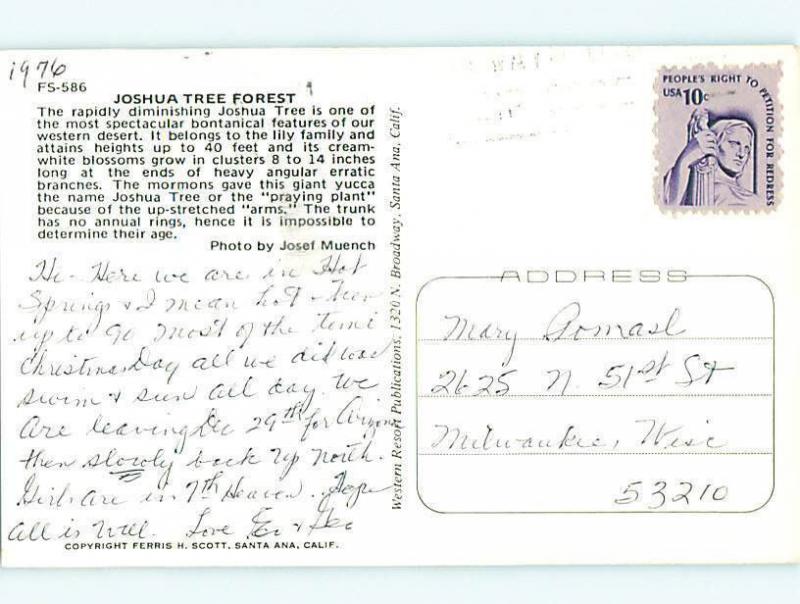 1976
FS-586
JOSHUA TREE FOREST
The rapidly diminishing Joshua Tree is one of
the most spectacular bontanical features of our
western desert. It belongs to the lily family and
attains heights up to 40 feet and its cream-
white blossoms grow in clusters 8 to 14 inches
long at the ends of heavy angular erratic
branches. The mormons gave this giant yucca
the name Joshua Tree or the "praying plant"
because of the up-stretched "arms." The trunk
has no annual rings, hence it is impossible to
determine their age.
Photo by Josef Muench
Hi - Here we are in Hot
Springs & I mean hot -
up to 90 most of the time
Christmas Day all we did was
swim & sun all day. We
are leaving Dec 29th for Arizona
then slowly back up North.
Girls are in 7th Heaven. Hope
all is well. Love
COPYRIGHT FERRIS H. SCOTT, SANTA ANA, CALIF.
Western Resort Publications, 1320 N. Broadway, Santa Ana, Calif.
PEOPLE'S RIGHT TO PETITION FOR REDRESS
USA 10c
ADDRESS
Mary
2625 N. 51st St
Milwaukee, Wisc
53210